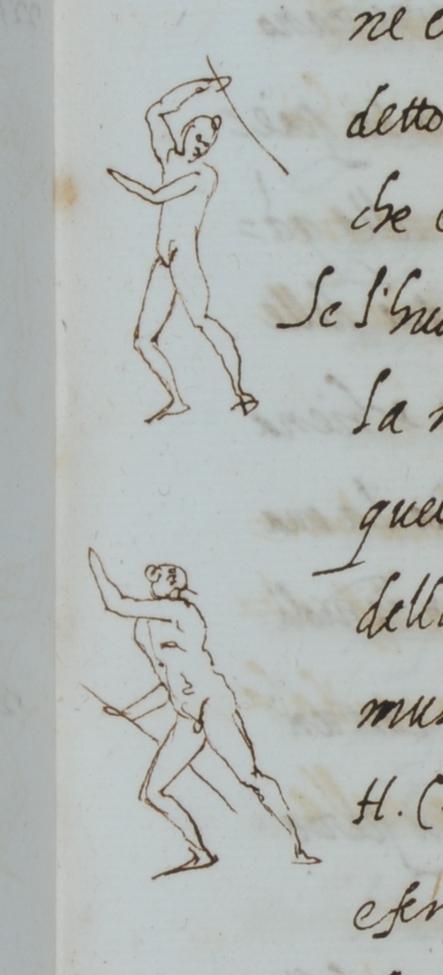 ne
detto
che
Se l'hu
la
que
dell
mu
H. C
eser